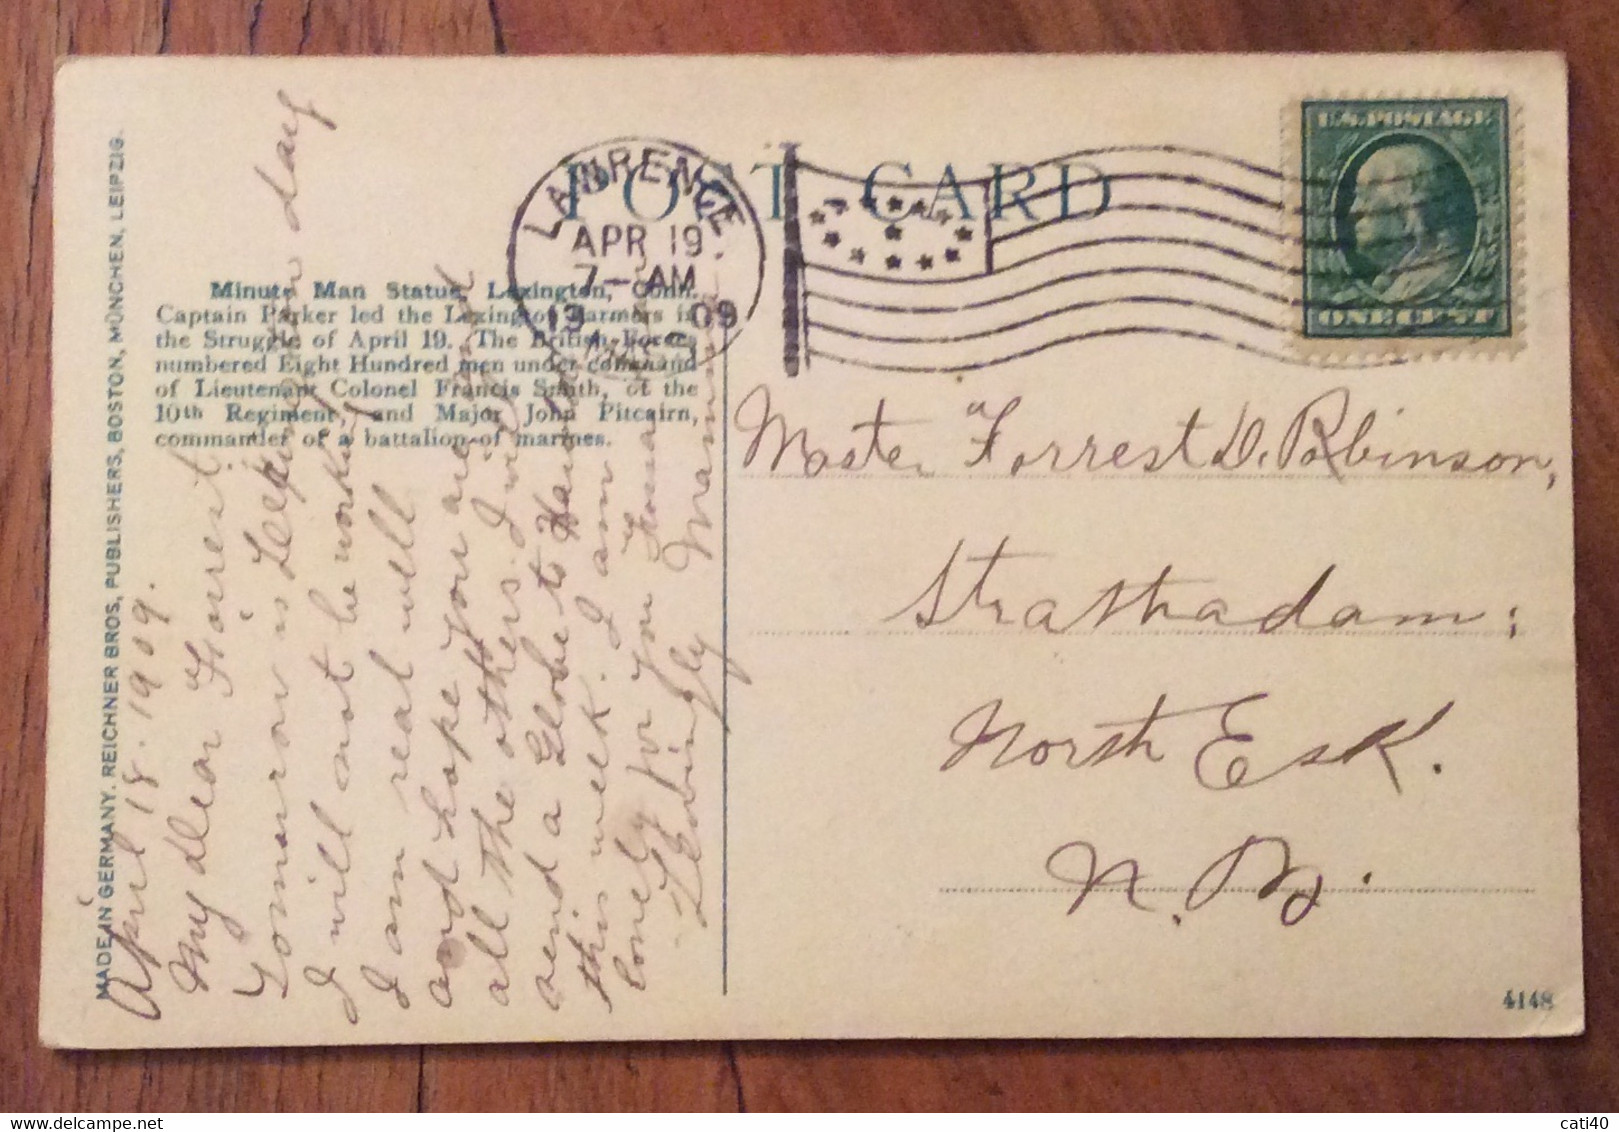 POST CARD
LAWRENCE
APR 19
7—AM
09
MASS.
U.S. POSTAGE
ONE CENT
Minute Man Statue, Lexington, Conn.
Captain Parker led the Lexington Farmers in
the Struggle of April 19. The British Forces
numbered Eight Hundred men under command
of Lieutenant Colonel Francis Smith, of the
10th Regiment, and Major John Pitcairn,
commander of a battalion of marines.
MADE IN GERMANY. REICHNER BROS, PUBLISHERS, BOSTON, MÜNCHEN, LEIPZIG.
April 18. 1909.
My dear Forrest
Tomorrow is Lexington day
I will not be working
I am real well
and hope you are and
all the others. I will
send a Globe to
this week. I am
lonely for you
Lovingly Mamma
Master Forrest D. Robinson,
Strathadam;
North Esk.
N. B.
4148
cati40